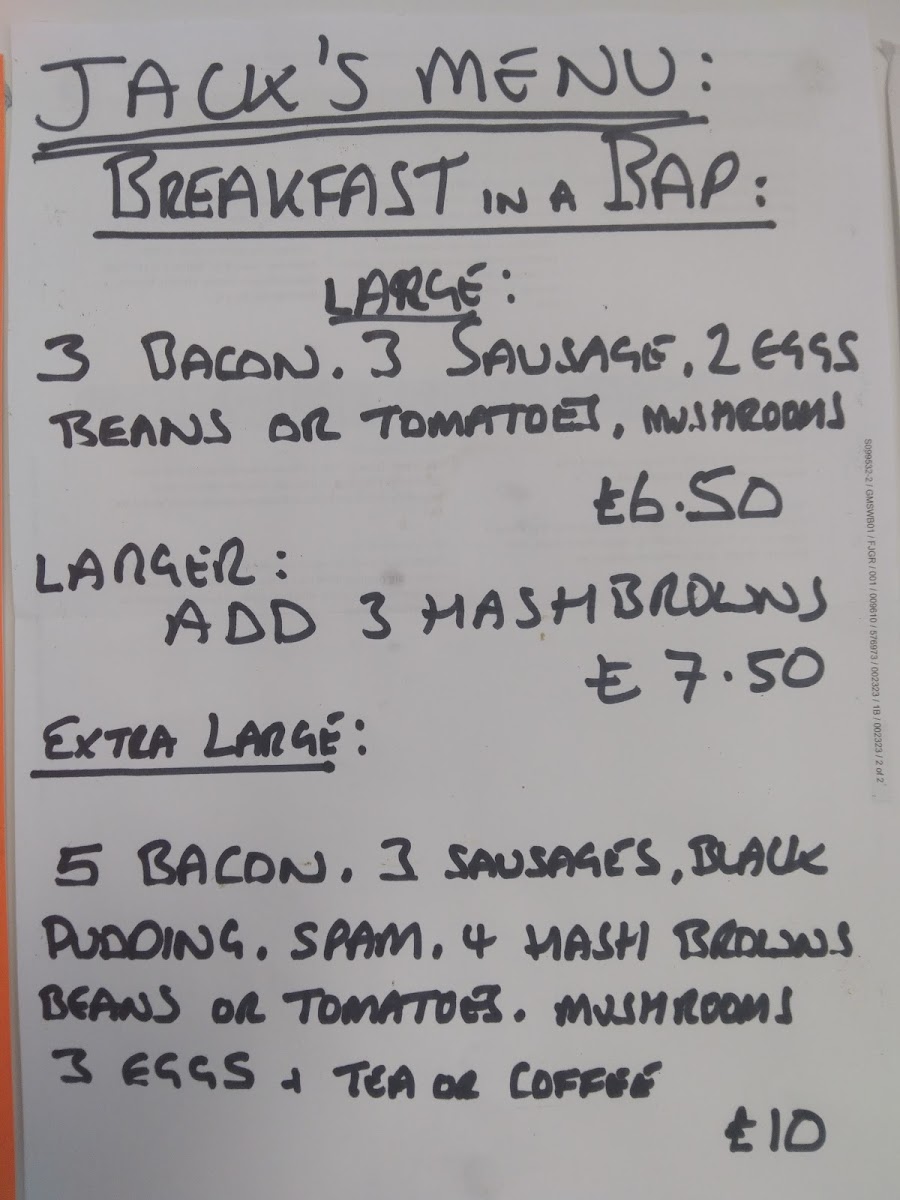 JACK'S MENU:
BREAKFAST IN A BAP:
LARGE:
3 BACON. 3 SAUSAGE. 2 EGGS
BEANS OR TOMATOES, MUSHROOMS
£6.50
LARGER:
ADD 3 HASHBROWNS
£7.50
EXTRA LARGE:
5 BACON. 3 SAUSAGES, BLACK
PUDDING. SPAM. 4 HASH BROWNS
BEANS OR TOMATOES. MUSHROOMS
3 EGGS + TEA OR COFFEE
£10
S099532-2 / GMSWB01 / FJGR / 001 / 009610 / 576973 / 002323 / 1B / 002323 / 2 of 2